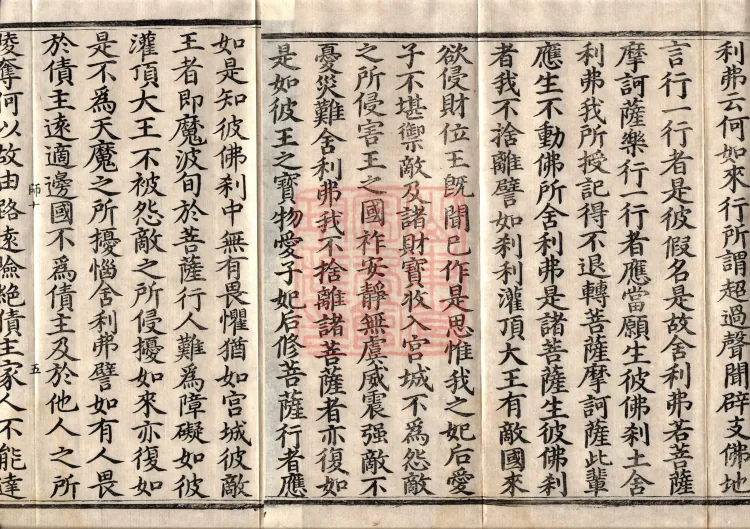 利弗云何如來行所謂超過聲聞辟支佛地
言行一行者是彼假名是故舍利弗若菩薩
摩訶薩樂行一行者應當願生彼佛刹土舍
利弗我所授記得不退轉菩薩摩訶薩此輩
應生不動佛所舍利弗是諸菩薩生彼佛刹
者我不捨離譬如刹利灌頂大王有敵國來
欲侵財位王旣聞已作是思惟我之妃后愛
子不堪禦敵及諸財寶收入宮城不爲怨敵
之所侵害王之國祚安靜無虞威震强敵不
憂災難舍利弗我不捨離諸菩薩者亦復如
是如彼王之寶物愛子妃后修菩薩行者應
如是知彼佛刹中無有畏懼猶如宮城彼敵
王者即魔波旬於菩薩行人難爲障礙如彼
灌頂大王不被怨敵之所侵擾如來亦復如
是不爲天魔之所擾惱舍利弗譬如有人畏
於債主遠適邊國不爲債主及於他人之所
師十 五
陵奪何以故由路遠險絶債主家人不能達